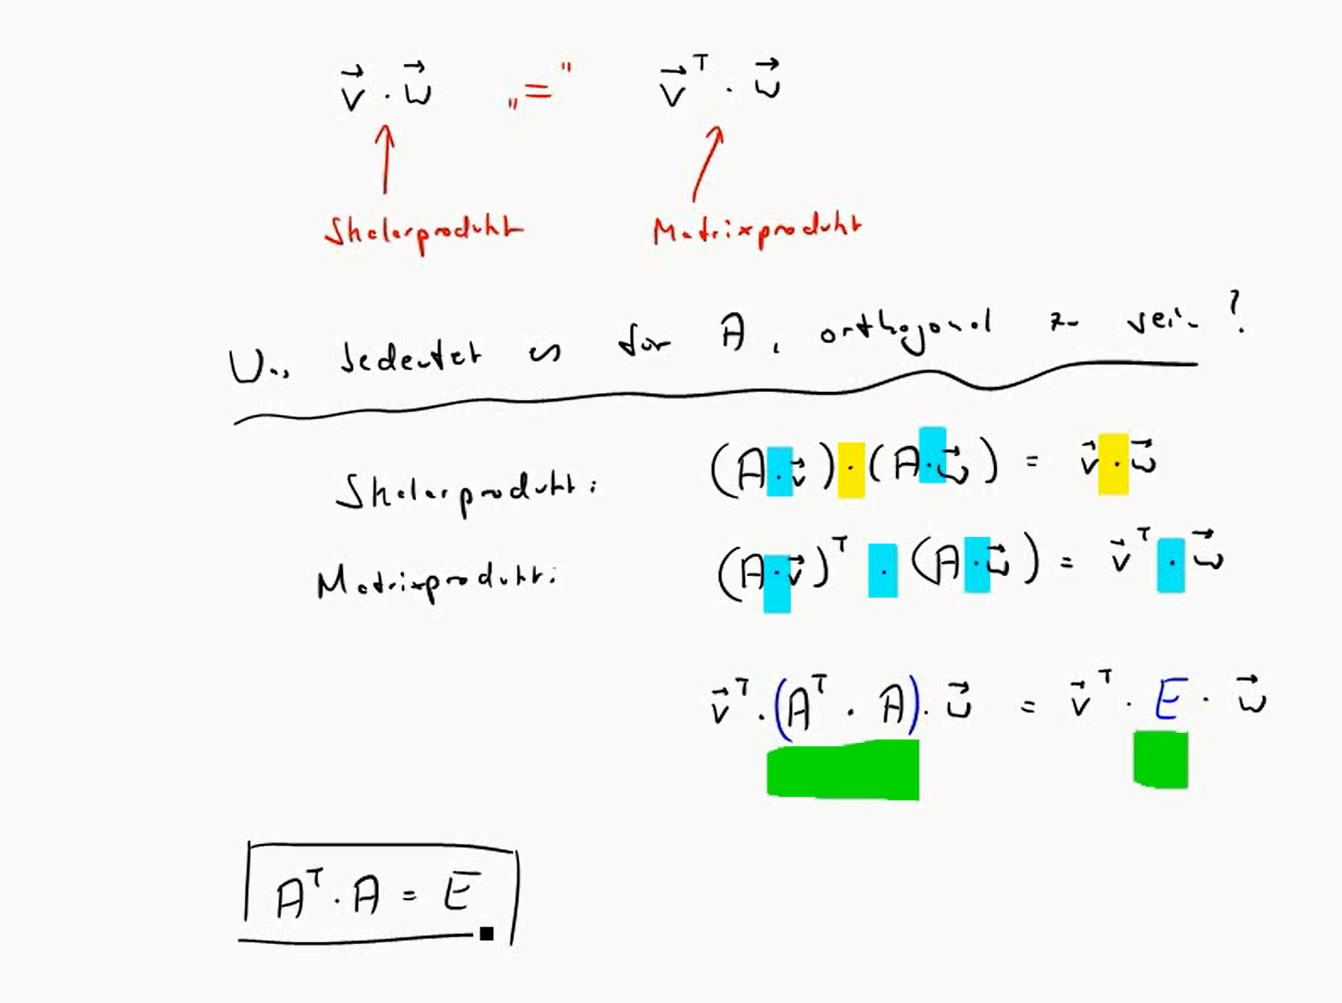 v⃗ · w⃗ „=" v⃗ᵀ · w⃗
Skalarprodukt Matrixprodukt
Was bedeutet es für A, orthogonal zu sein?
Skalarprodukt: (A·v⃗)·(A·w⃗) = v⃗·w⃗
Matrixprodukt: (A·v⃗)ᵀ · (A·w⃗) = v⃗ᵀ · w⃗
v⃗ᵀ·(Aᵀ · A)· w⃗ = v⃗ᵀ · E · w⃗
Aᵀ · A = E